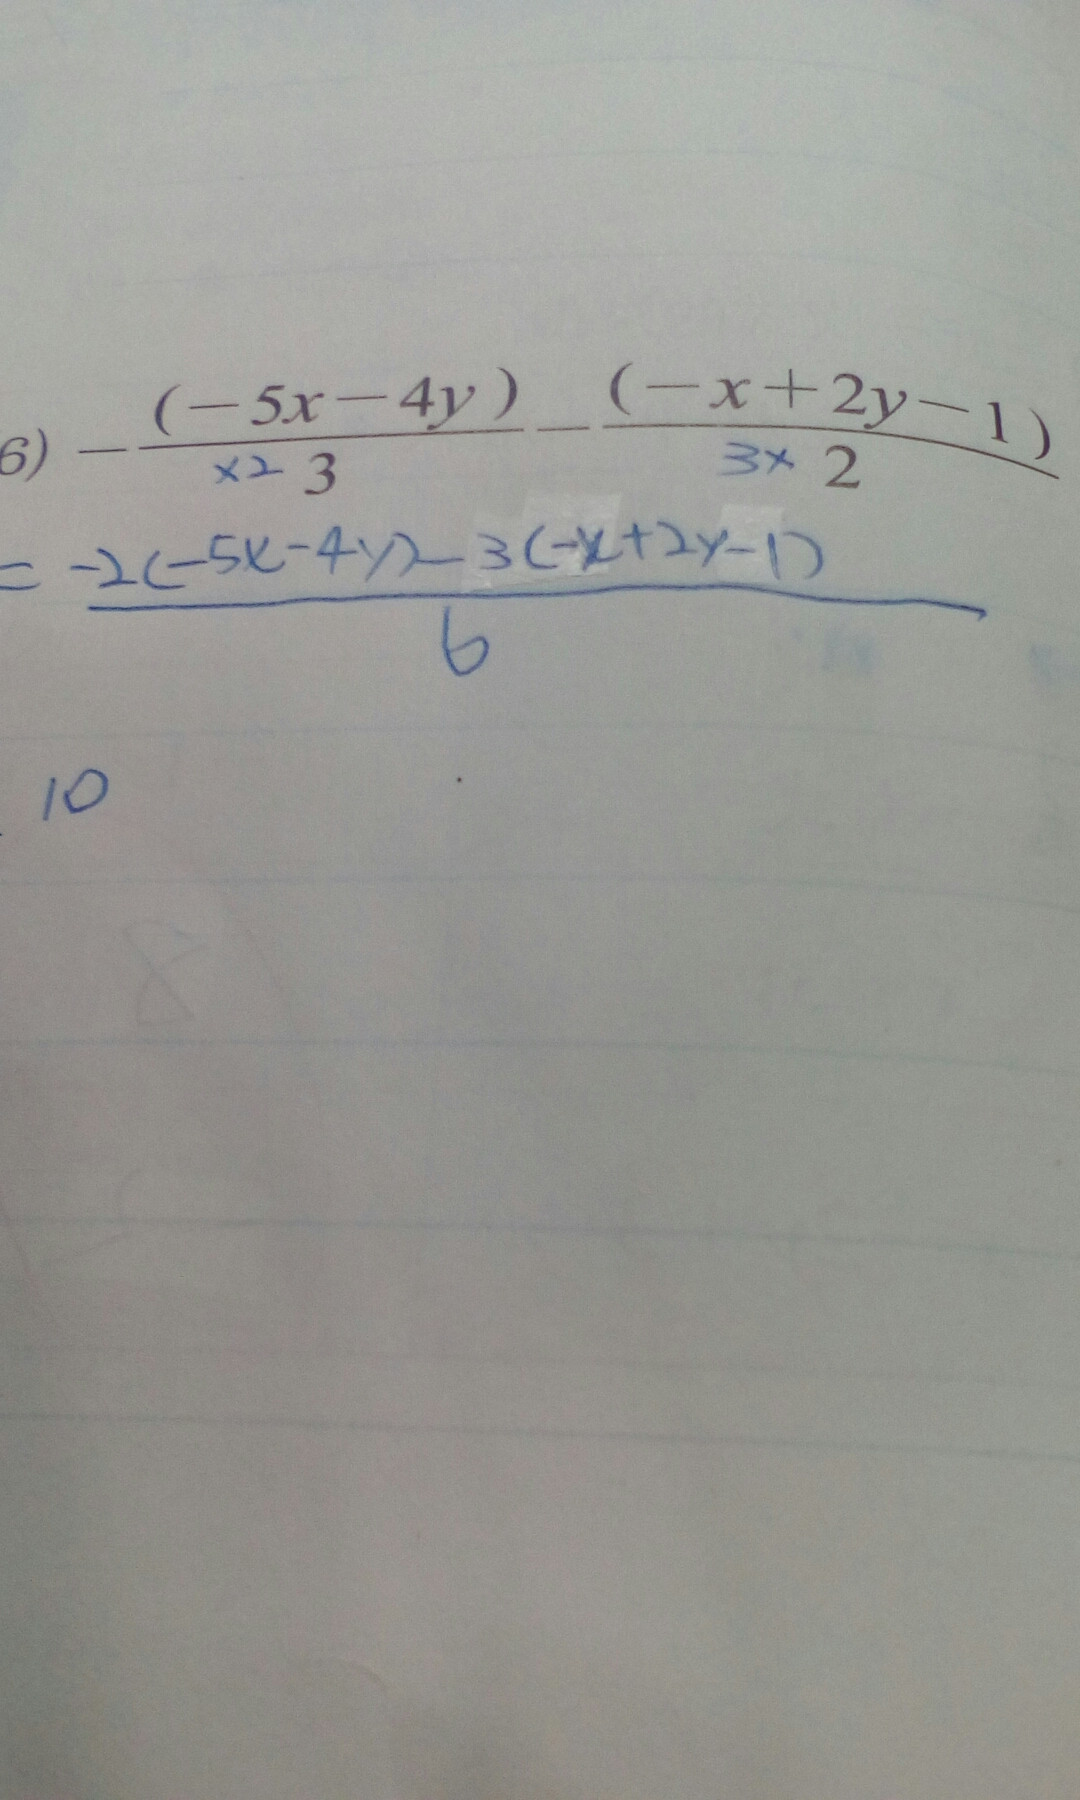 6) -(-5x-4y)/3 - (-x+2y-1)/2
x2 3x
= -2(-5x-4y)-3(-x+2y-1)
6
10